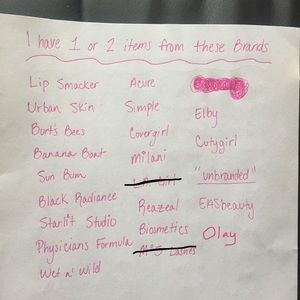 I have 1 or 2 items from these Brands
Lip Smacker
Urban Skin
Burt's Bees
Banana Boat
Sun Bum
Black Radiance
Starlit Studio
Physicians Formula
Wet n' Wild
Acure
Simple
Covergirl
Milani
Girl
Reazeal
Biosmetics
Lashes
Elby
Cutygirl
"unbranded"
EASbeauty
Olay